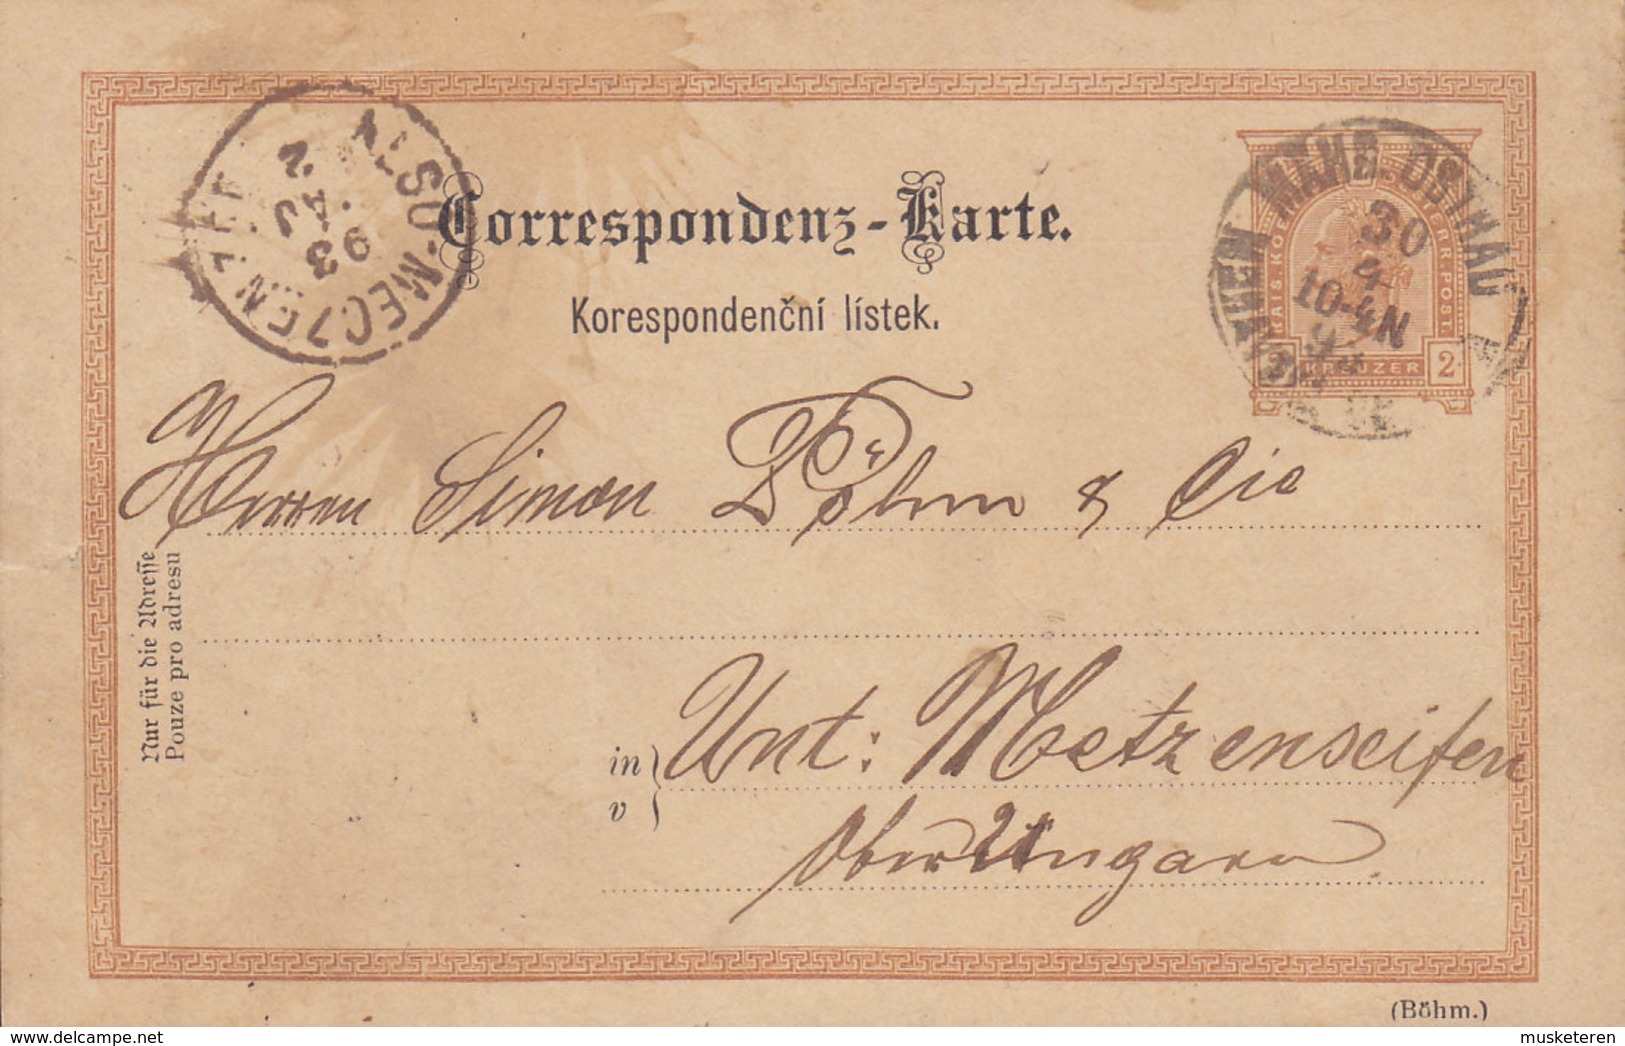 ALSÓ-MECZENZÉF
93
MÁJ.
2
Correspondenz-Karte.
Korespondenční lístek.
MÄHR. OSTRAU
30
4
10-4N
KAIS. KOEN. OESTERR. POST.
2 KREUZER 2
Herren Simon Böhm & Cie
Nur für die Adresse
Pouze pro adresu
in
v
Unt: Metzenseifen
Ober Ungarn
(Böhm.)
musketeren